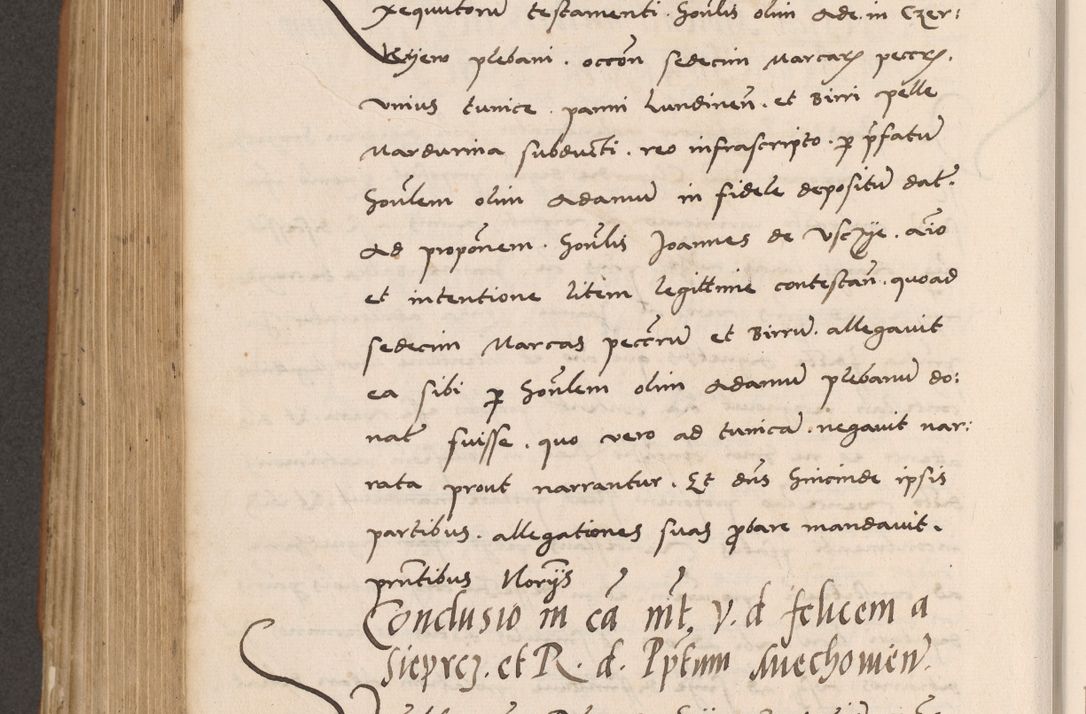 xequutorũ testamenti. Honĩlis olim Ade. in Czer:
plebani. occõn sedecim Marcarꝝ peccrꝝ.
vnius tunice. panni Lundineñ. et Birri pelle
Mardurina subducti. reo infrascripto. ꝑ p̃fatũ
Honĩlem olim Adamũ in fidele depositũ dat̃.
Ad propoñem. Honĩlis Joannes de Vsczije. aĩo
et intentione litem legittime contestañ. quoad
sedecim Marcas peccrũ et Birrũ. allegauit
ea sibi ꝑ Honĩlem olim Adamũ plebanũ do:
nat̃ fuisse. quo vero ad tunicã. negauit nar:
rata prout narrantur. Et dñs hincinde ipsis
partibus. allegationes suas ꝓbare mandauit.
pñtibus Norijs
Conclusio in cã int̃, V. d. felicem a
Sieprcz. et R. d. Pptum Miechouien̄.